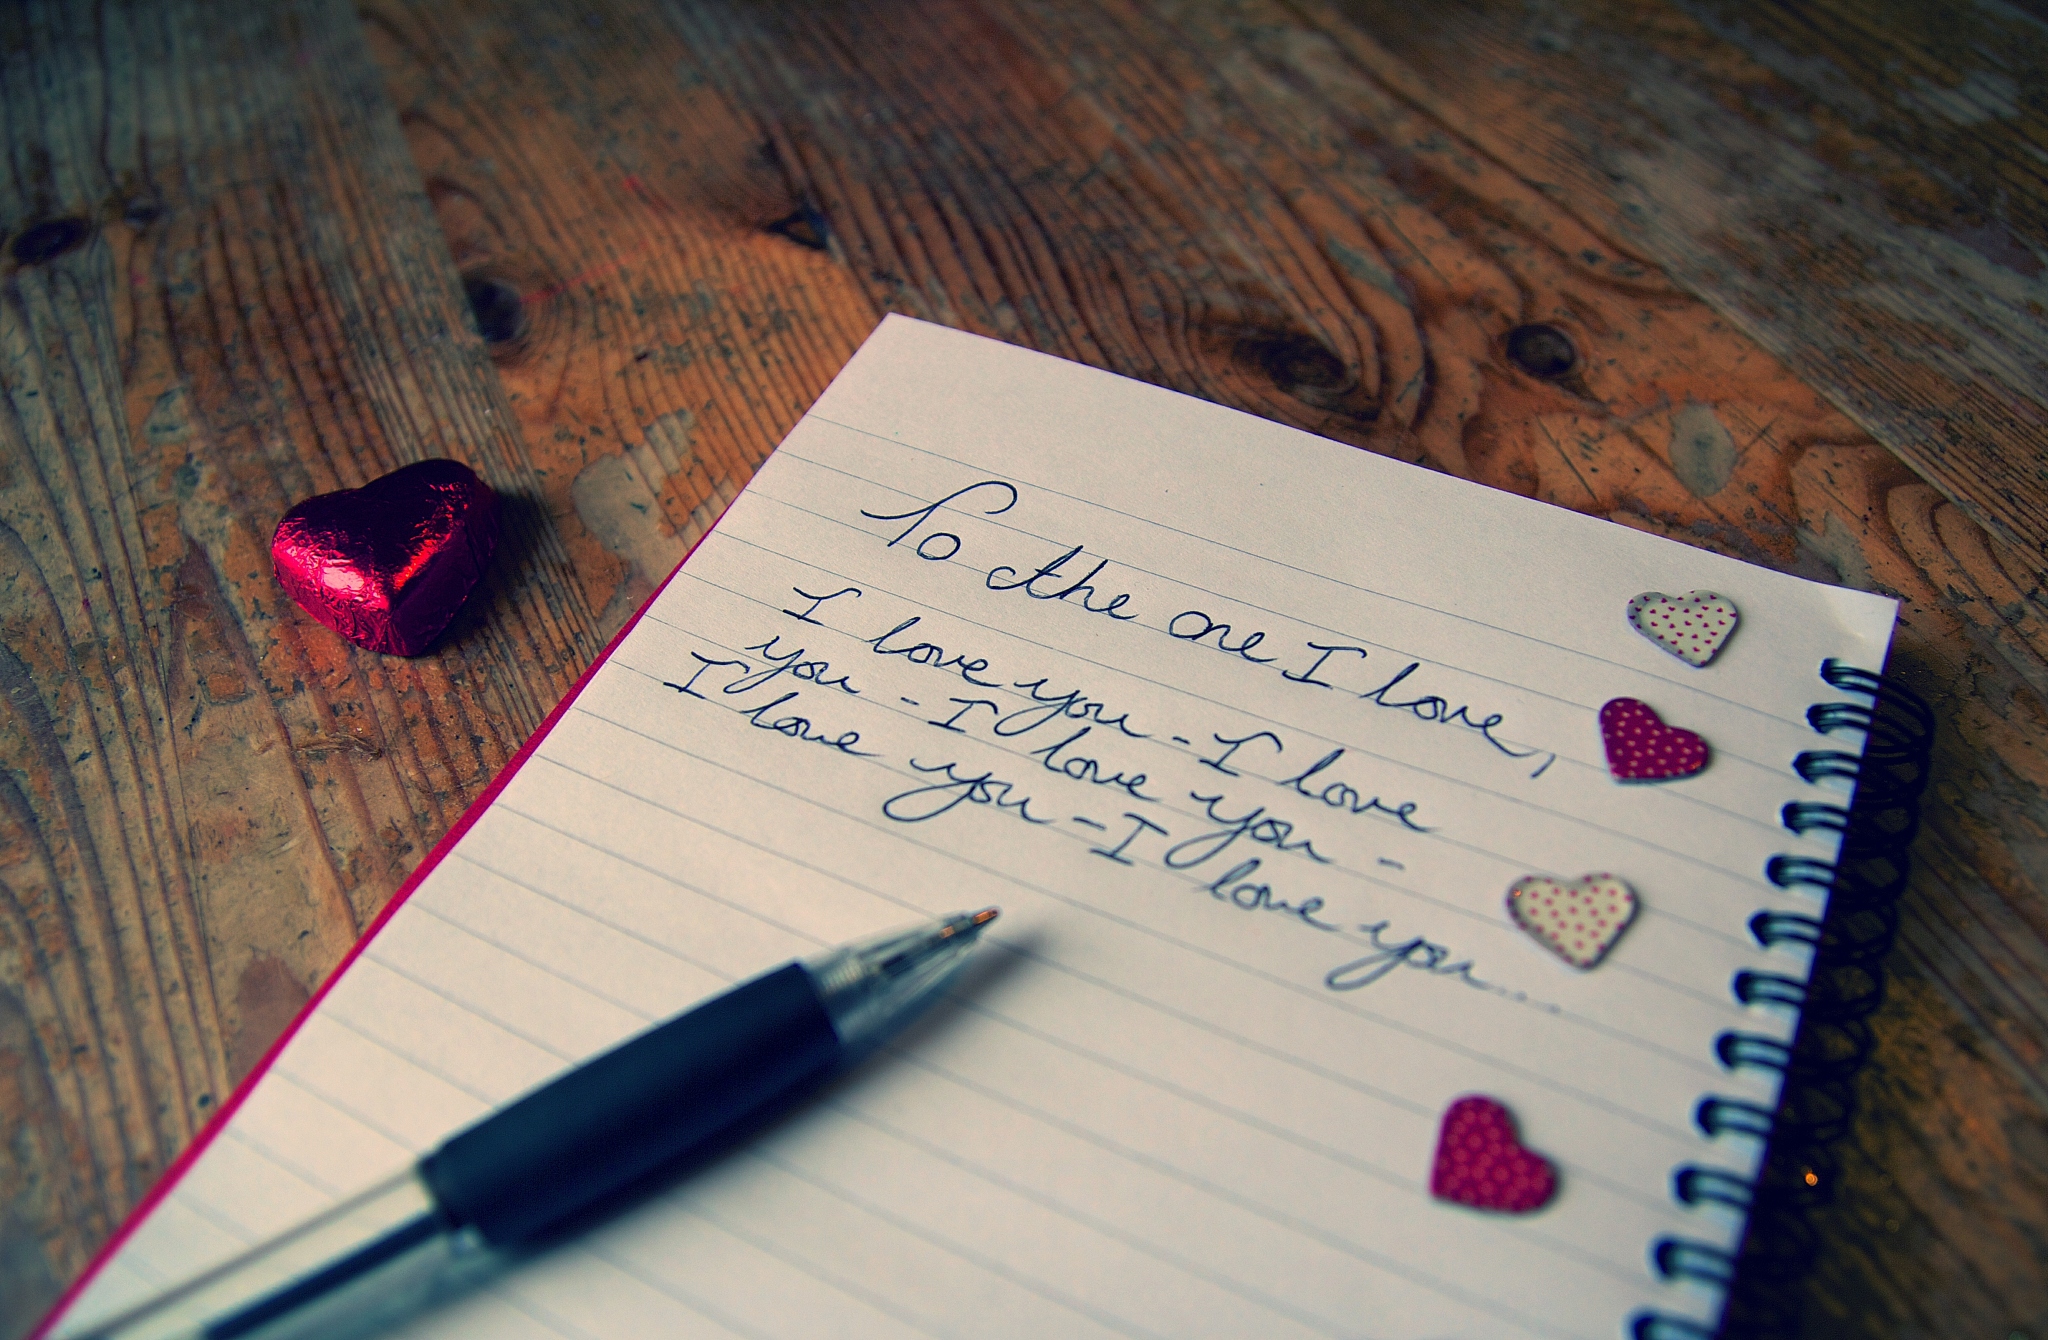 To the one I love,
I love you - I love
you - I love you -
I love you - I love you....